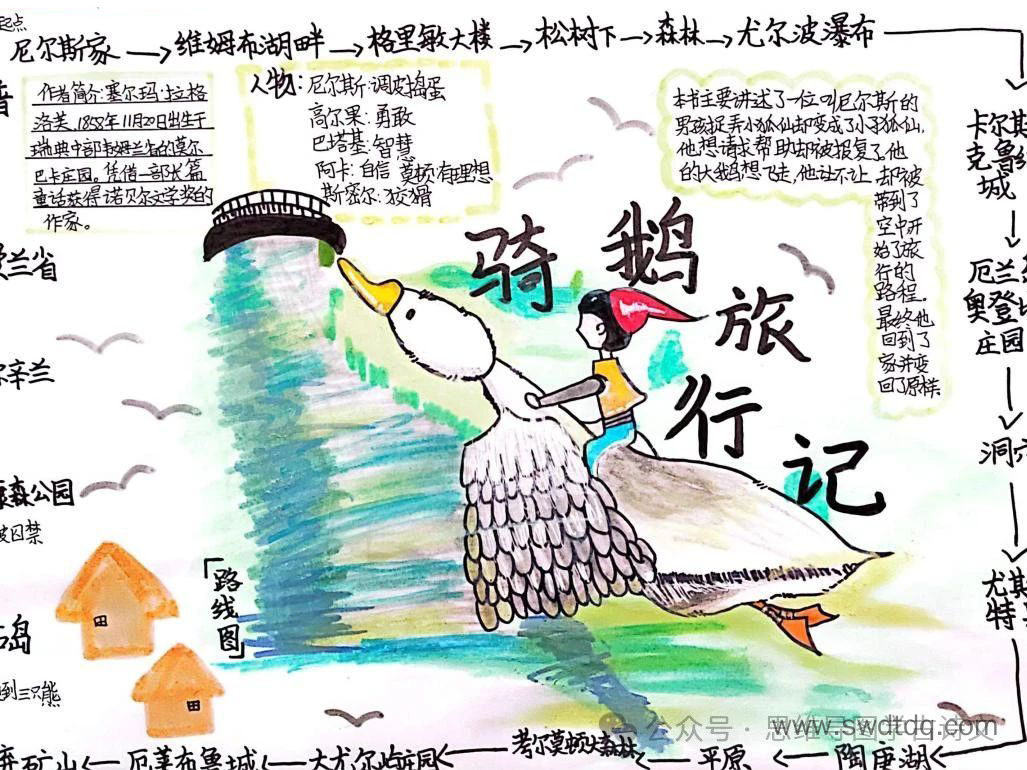 起点
尼尔斯家→维姆布湖畔→格里敏大楼→松树下→森林→尤尔波瀑布
作者简介:塞尔玛·拉格
洛芙,1858年11月20日出生于
瑞典中部
巴卡庄园。凭借一部长篇
童话获得诺贝尔文学奖的
作家。
人物:尼尔斯:调皮捣蛋
高尔果:勇敢
巴塔基:智慧
阿卡:自信 莫顿:有理想
斯密尔:狡猾
本书主要讲述了一位叫尼尔斯的
男孩捉弄小狐仙却变成了小狐仙,
他想请求帮助却被报复了。他
的大鹅想飞走,他让不让,却被
带到了
空中开
始了旅
行的
路程。
最终他
回到了
家并变
回了原样。
骑鹅旅行记
卡尔斯
克鲁
城
厄兰
奥登
庄园
洞
尤其
特
兰省
辛兰
森公园
被囚禁
岛
到三只熊
「路线图」
矿山←厄莱布鲁城←大尤尔屿庄园←考尔莫顿大森林←平原←陶庚湖
公众号·思维导图
www.swdtdq.com